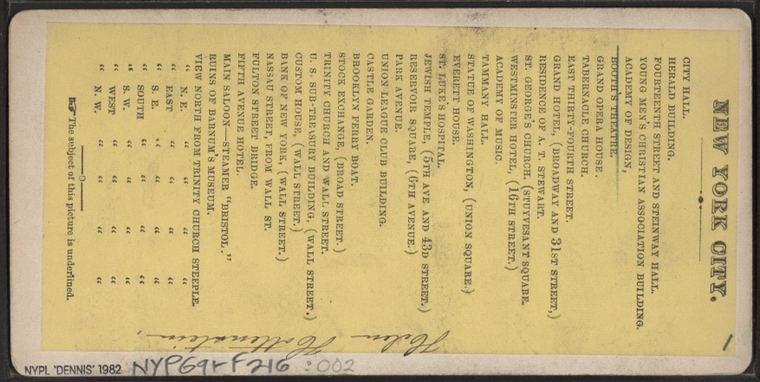 1
NEW YORK CITY.
CITY HALL.
HERALD BUILDING.
FOURTEENTH STREET AND STEINWAY HALL.
YOUNG MEN'S CHRISTIAN ASSOCIATION BUILDING.
ACADEMY OF DESIGN,
BOOTH'S THEATRE.
GRAND OPERA HOUSE.
TABERNACLE CHURCH.
EAST THIRTY-FOURTH STREET.
GRAND HOTEL, (BROADWAY AND 31ST STREET,)
RESIDENCE OF A. T. STEWART.
ST. GEORGE'S CHURCH, (STUYVESANT SQUARE.
WESTMINSTER HOTEL, (16TH STREET.)
ACADEMY OF MUSIC.
TAMMANY HALL.
STATUE OF WASHINGTON, (UNION SQUARE.)
EVERETT HOUSE.
ST. LUKE'S HOSPITAL.
JEWISH TEMPLE, (5TH AVE. AND 43D STREET.)
RESERVOIR SQUARE, (6TH AVENUE.)
PARK AVENUE.
UNION LEAGUE CLUB BUILDING.
CASTLE GARDEN.
BROOKLYN FERRY BOAT.
STOCK EXCHANGE, (BROAD STREET.)
TRINITY CHURCH AND WALL STREET.
U. S. SUB-TREASURY BUILDING, (WALL STREET.)
CUSTOM HOUSE, (WALL STREET.)
BANK OF NEW YORK, (WALL STREET.)
NASSAU STREET, FROM WALL ST.
FULTON STREET BRIDGE.
FIFTH AVENUE HOTEL.
MAIN SALOON—STEAMER "BRISTOL."
RUINS OF BARNUM'S MUSEUM.
VIEW NORTH FROM TRINITY CHURCH STEEPLE.
" N. E. " " " "
" EAST " " " "
" S. E. " " " "
" SOUTH " " " "
" S. W. " " " "
" WEST " " " "
" N. W. " " " "
The subject of this picture is underlined.
Helen Hottenstein,
NYPL 'DENNIS' 1982 NYPG91-F216 :002